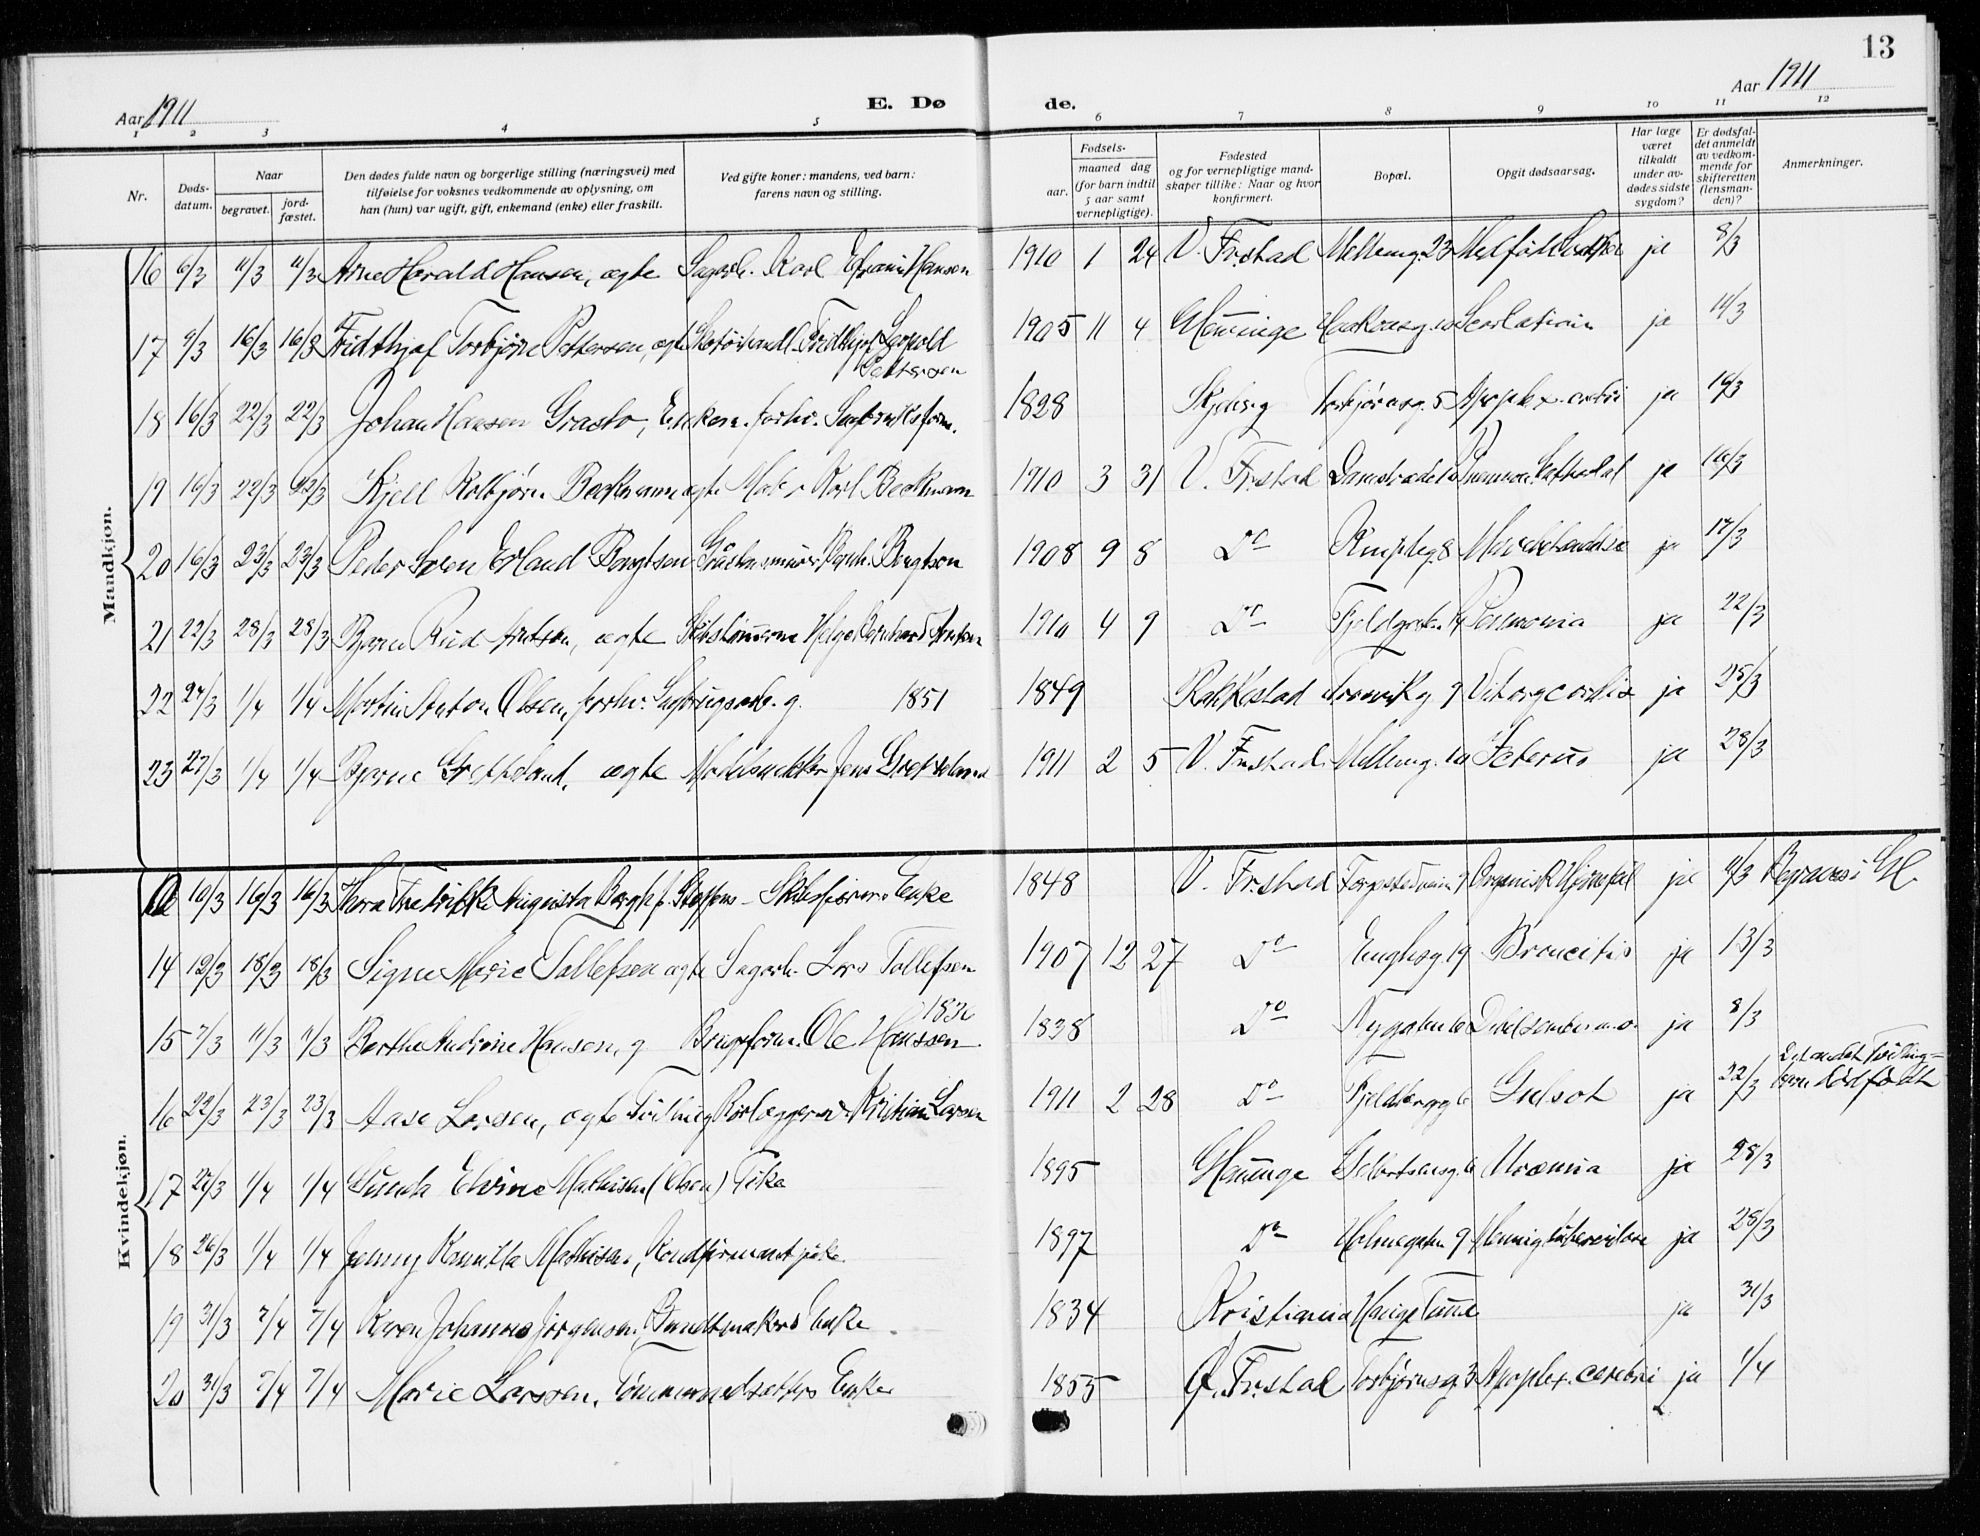 13
Aar 1911 E. Dø de. Aar 1911
1 2 3 4 5 6 7 8 9 10 11 12
Nr. Døds-datum. Naar begravet. jord-fæstet. Den dødes fulde navn og borgerlige stilling (næringsvei) med tilføielse for voksnes vedkommende av oplysning, om han (hun) var ugift, gift, enkemand (enke) eller fraskilt. Ved gifte koner: mandens, ved barn: farens navn og stilling. Fødsels- aar. maaned dag (for barn indtil 5 aar samt vernepligtige). Fødested og for vernepligtige mandskaper tillike: Naar og hvor konfirmert. Bopæl. Opgit dødsaarsag. Har læge været tilkaldt under avdødes sidste sygdom? Er dødsfaldet anmeldt av vedkommende for skifteretten (lensmanden)? Anmerkninger.
Mandkjøn.
16 6/3 11/3 11/3 Arne Harald Hansen, ægte Sagarb. Karl Efraim Hansen 1910 1 24 V. Fr.stad Mellemg. 23 Medfødt ja 8/3
17 9/3 16/3 16/3 Fridthjof Torbjørn Pettersen, ægte Fridthjof Leopold Pettersen 1905 11 4 Glemminge Haakonsg. 10 Scarlatina ja 11/3
18 16/3 22/3 22/3 Johan Hansen Enkem. forhv. 1828 Skjeberg Torbjørnsg. 5 Apoplex. cerebri ja 16/3
19 16/3 22/3 22/3 Kjell Kolbjørn Beckmann ægte Karl Beckmann 1910 3 31 V. Fr.stad ja 16/3
20 16/3 23/3 23/3 Peder Sven Erland Bengtson Bengtson 1908 9 8 Do ja 17/3
21 22/3 28/3 28/3 Bjarne Rud ægte Helge Bernhard 1910 4 9 Do Pneumonia ja 22/3
22 24/3 1/4 1/4 Martin Anton Olsen, forhv. g. 1851 1849 Rakkestad 9 Vit. org. cordis ja 25/3
23 27/3 1/4 1/4 Bjarne Grefsland, ægte Modelsnekker Jens Grefsland 1911 2 5 V. Fr.stad Mellemg. 10 Icterus ja 28/3
Kvindekjøn.
10/3 16/3 16/3 Thora Fredrikke Augusta Bergh f. Steffens - Skibsførers Enke 1848 V. Fr.stad Organisk Hjertefeil ja 11/3 Begraves i Gl.
14 12/3 18/3 18/3 Signe Marie Tollefsen ægte Sagarb. Lars Tollefsen 1907 12 27 Do 19 Broncitis ja 13/3
15 7/3 11/3 11/3 Berthe Andrine Hansen, g Brugsform. Ole Hanssen 1838 Do Nygaten 6 ja 8/3
16 22/3 23/3 23/3 Aase Larsen, ægte Tvilling Rørlægger Kristian Larsen 1911 2 28 Do Fjeldbergg 6 Gulsot ja 22/3 Det andet Tvillingbarn dødfødt
17 27/3 1/4 1/4 Elvine Mathisen (Olsen) Pike 1895 Glemminge Uræmia ja 28/3
18 26/3 1/4 1/4 Jenny Kamilla Mathisen, pike 1897 Do Holmegaten 9 Mening. tuberculosa ja 28/3
19 31/3 7/4 7/4 Karen Johannes Jørgensen, Bundtmakers Enke 1834 Kristiania Hauge Tune ja 31/3
20 31/3 7/4 7/4 Marie Larsson, Enke 1855 Ø. Fr.stad Torbjørnsg. 3 Apoplex. cerebri ja 1/4